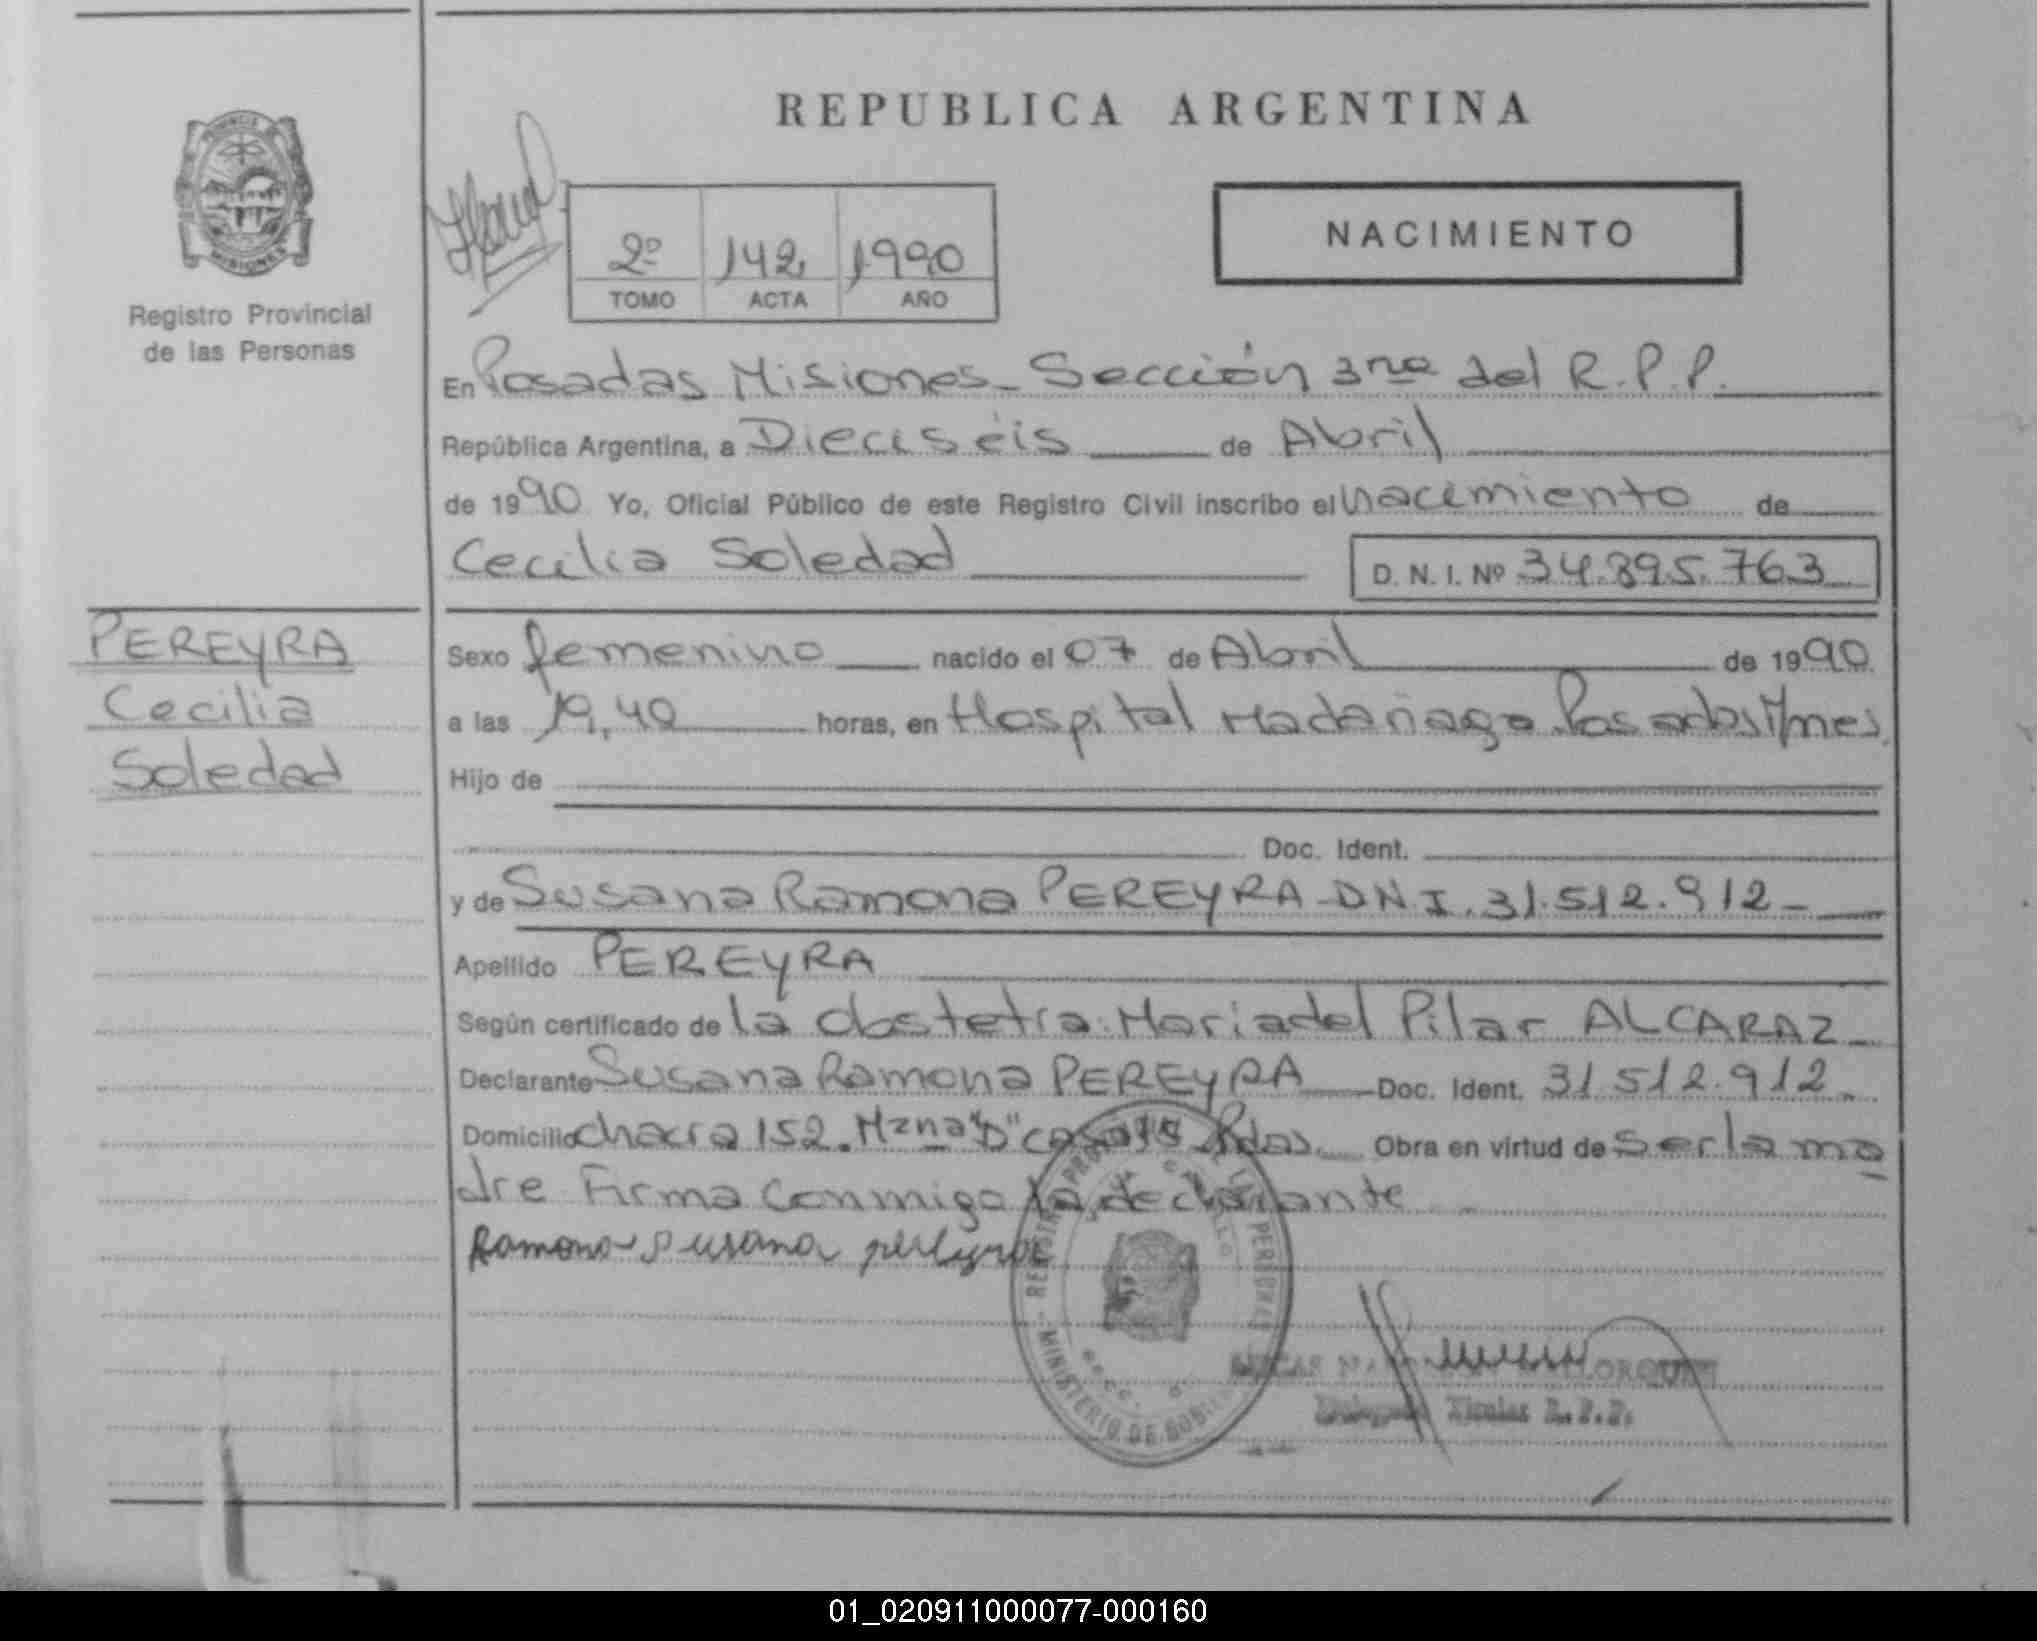 REPUBLICA ARGENTINA
PROVINCIA DE
MISIONES
Registro Provincial
de las Personas
2º 142 1990
TOMO ACTA AÑO
NACIMIENTO
En Posadas Misiones - Sección 3ra del R.P.P.
República Argentina, a Dieciséis de Abril
de 1990 Yo, Oficial Público de este Registro Civil inscribo el nacimiento de
Cecilia Soledad D. N. I. Nº 34.895.763
PEREYRA
Cecilia
Soledad
Sexo femenino nacido el 07 de Abril de 1990
a las 19,40 horas, en Hospital Madariaga Posadas Mnes
Hijo de
Doc. Ident.
y de Susana Ramona PEREYRA - DNI. 31.512.912 -
Apellido PEREYRA
Según certificado de la obstetra: Maria del Pilar ALCARAZ
Declarante Susana Ramona PEREYRA Doc. Ident. 31.512.912
Domicilio chacra 152. Mzna "D" casa 15 Pdas. Obra en virtud de ser la ma
dre Firma Conmigo la declarante
Ramona Susana pereyra
REGISTRO PROVINCIAL DE LAS PERSONAS
MINISTERIO DE GOBIERNO
Titular R.P.P.
01_020911000077-000160